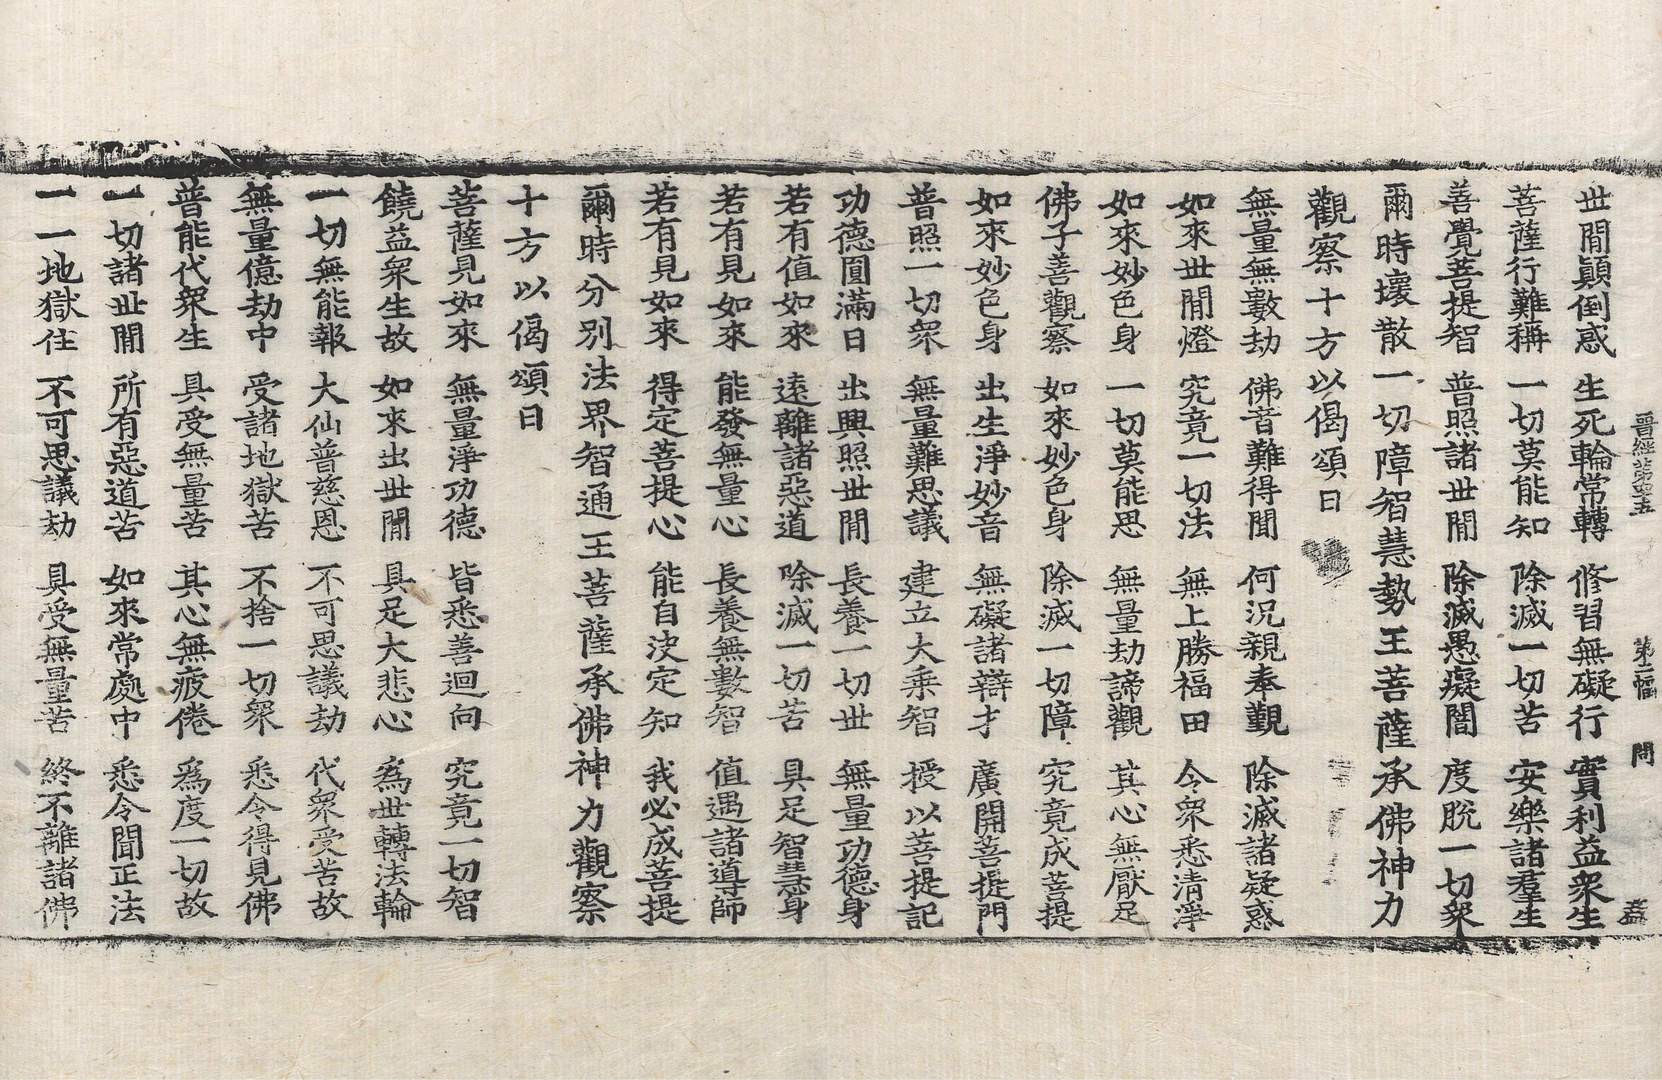 晉經第四五　第十二幅　問　盖
世間顚倒惑　生死輪常轉　修習無礙行　實利益衆生
菩薩行難稱　一切莫能知　除滅一切苦　安樂諸羣生
善覺菩提智　普照諸世間　除滅愚癡闇　度脫一切衆
爾時壞散一切障智慧勢王菩薩承佛神力
觀察十方以偈頌曰
無量無數劫　佛音難得聞　何況親奉覲　除滅諸疑惑
如來世間燈　究竟一切法　無上勝福田　令衆悉清淨
如來妙色身　一切莫能思　無量劫諦觀　其心無厭足
佛子善觀察　如來妙色身　除滅一切障　究竟成菩提
如來妙色身　出生淨妙音　無礙諸辯才　廣開菩提門
普照一切衆　無量難思議　建立大乘智　授以菩提記
功德圓滿日　出興照世間　長養一切世　無量功德身
若有值如來　遠離諸惡道　除滅一切苦　具足智慧身
若有見如來　能發無量心　長養無數智　值遇諸導師
若有見如來　得定菩提心　能自決定知　我必成菩提
爾時分別法界智通王菩薩承佛神力觀察
十方以偈頌曰
菩薩見如來　無量淨功德　皆悉善迴向　究竟一切智
饒益衆生故　如來出世間　具足大悲心　爲世轉法輪
一切無能報　大仙普慈恩　不可思議劫　代衆受苦故
無量億劫中　受諸地獄苦　不捨一切衆　悉令得見佛
普能代衆生　具受無量苦　其心無疲倦　爲度一切故
一切諸世間　所有惡道苦　如來常處中　悉令聞正法
一一地獄住　不可思議劫　具受無量苦　終不離諸佛